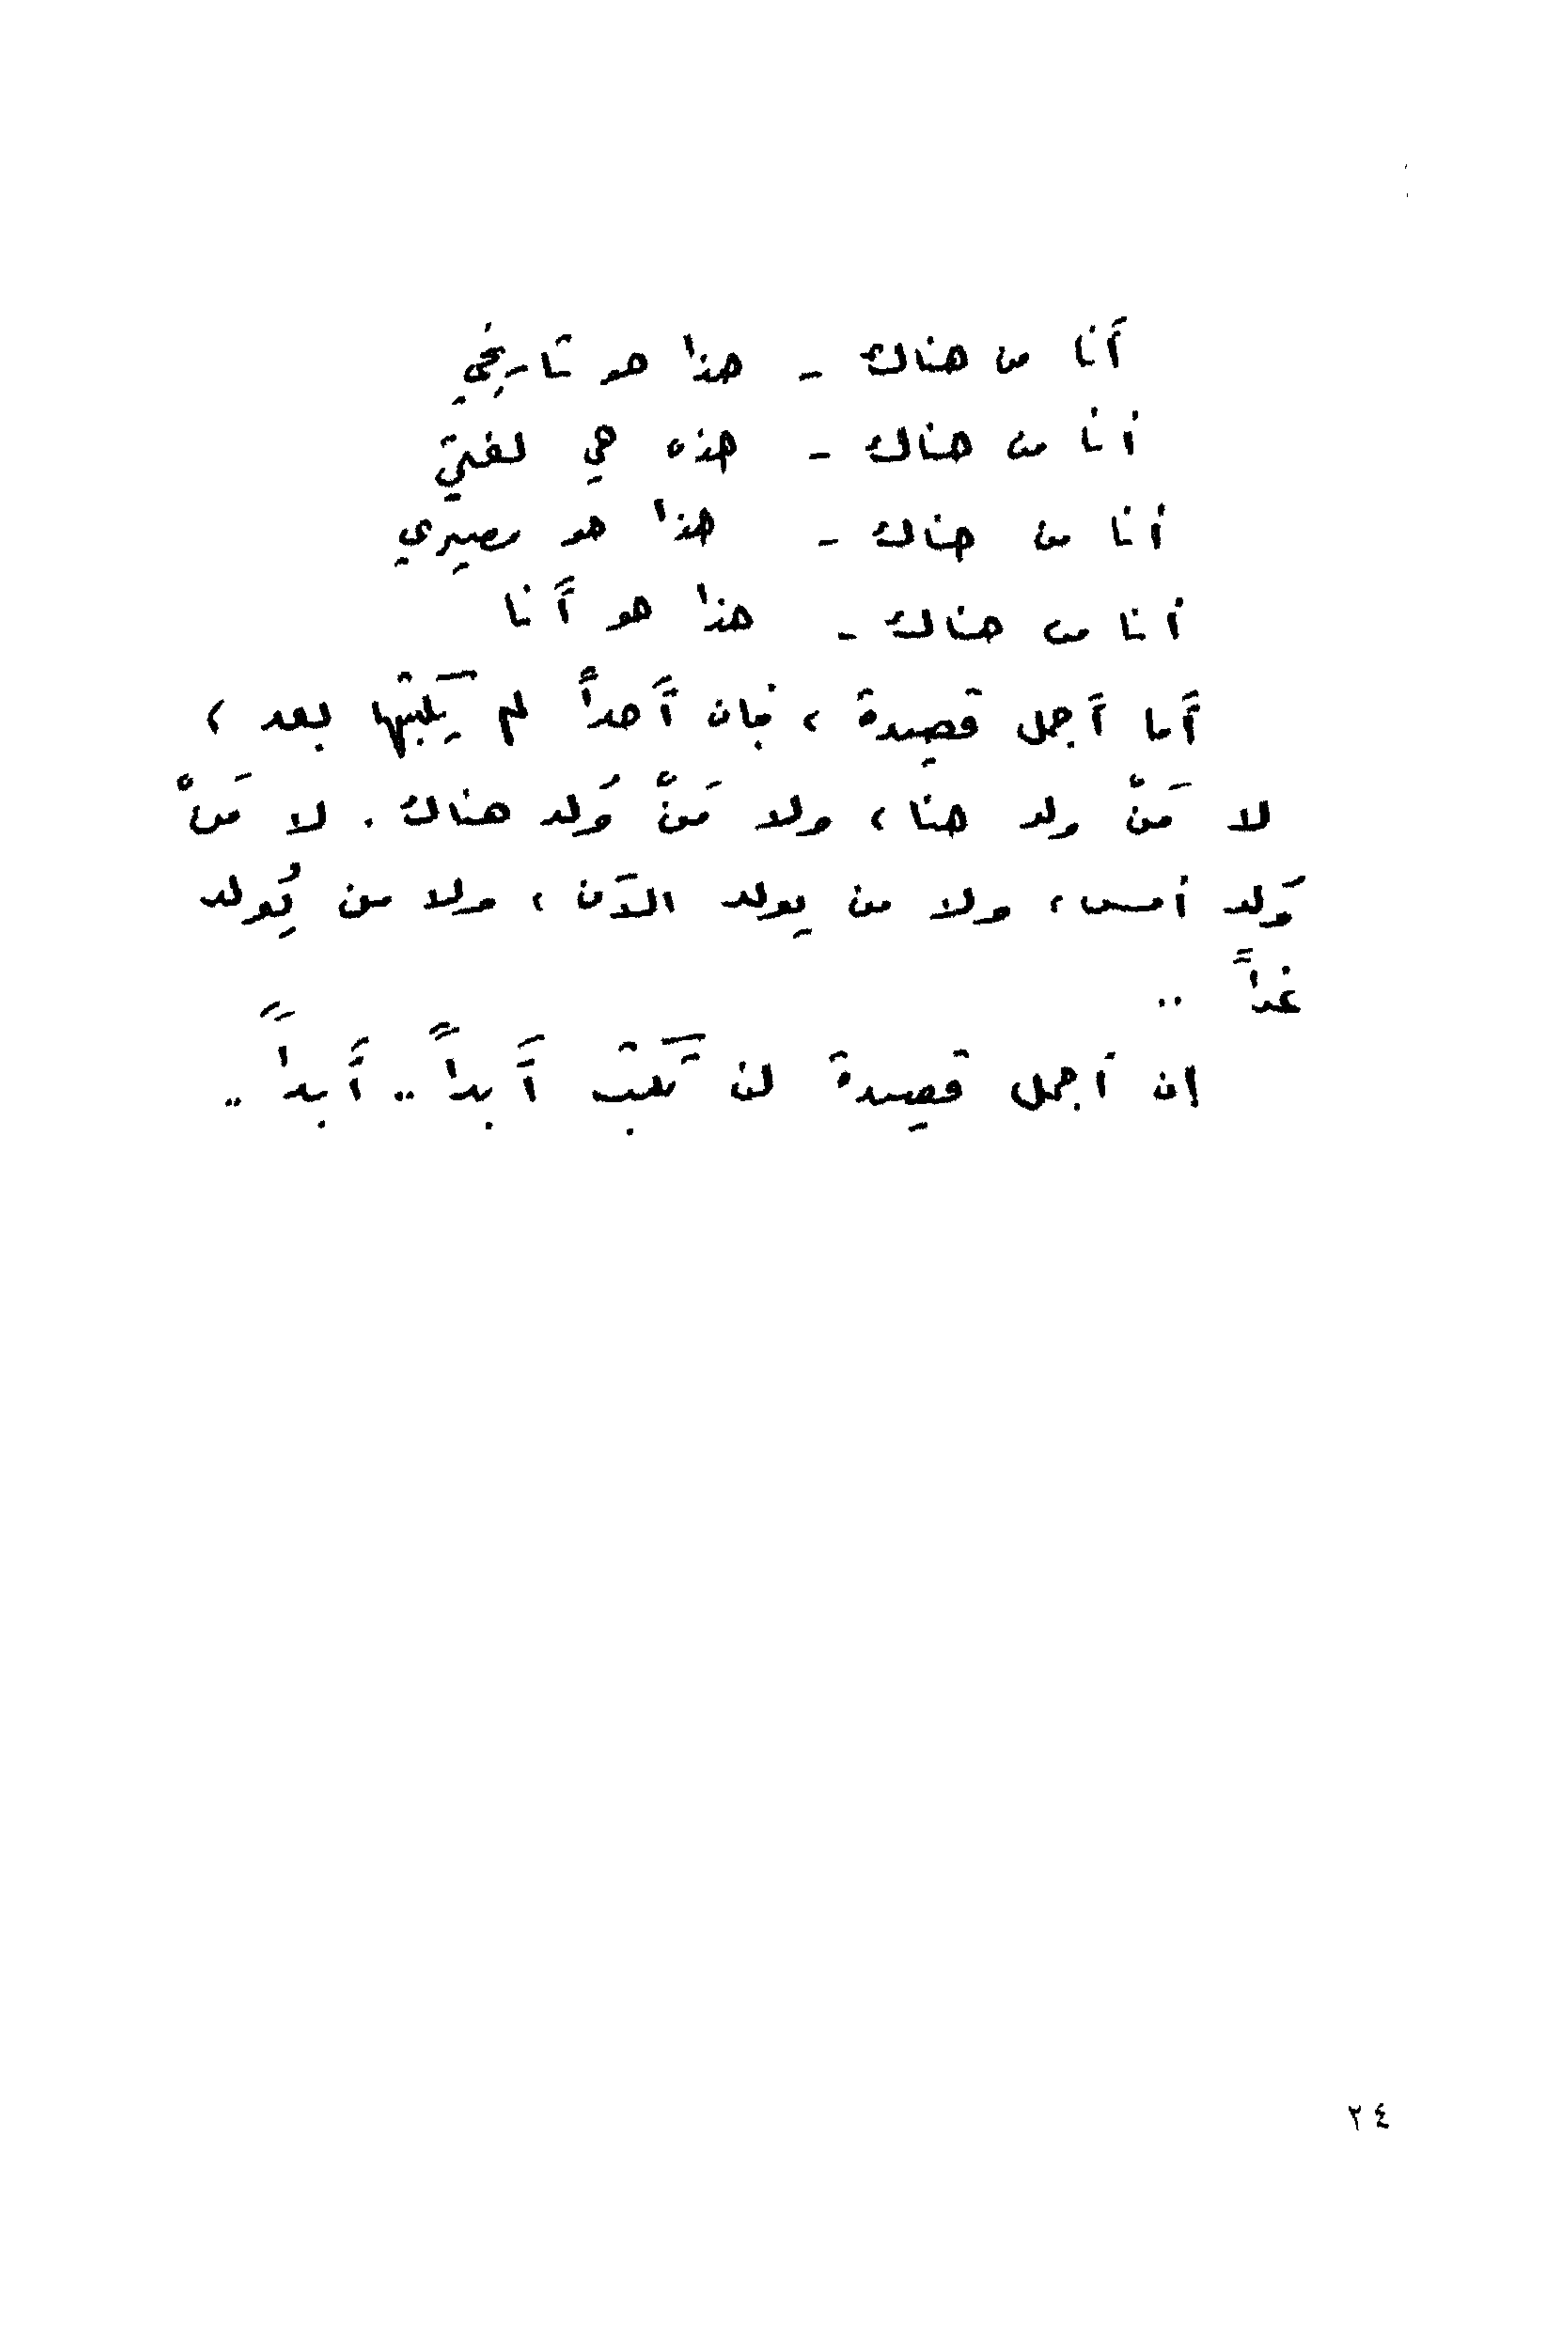 أَنا من هناك - هذا هو تاريخي
أنا من هناك - هذه هي لغتي
أنا من هناك - هذا هو مصيري
أنا من هناك - هذا هو أَنا
أَما أَجمل قصيدة ، فإن أَحداً لم يَكتبْها بعد ،
لا مَنْ ولد هنا ، ولا مَنْ وُلد هناك . لا مَنْ
وُلد أمس ، ولا من يولد الآن ، ولا من يُولد
غداً ..
إن أَجمل قصيدة لن تُكتَبْ أَبداً .. أَبداً ..
٢٤